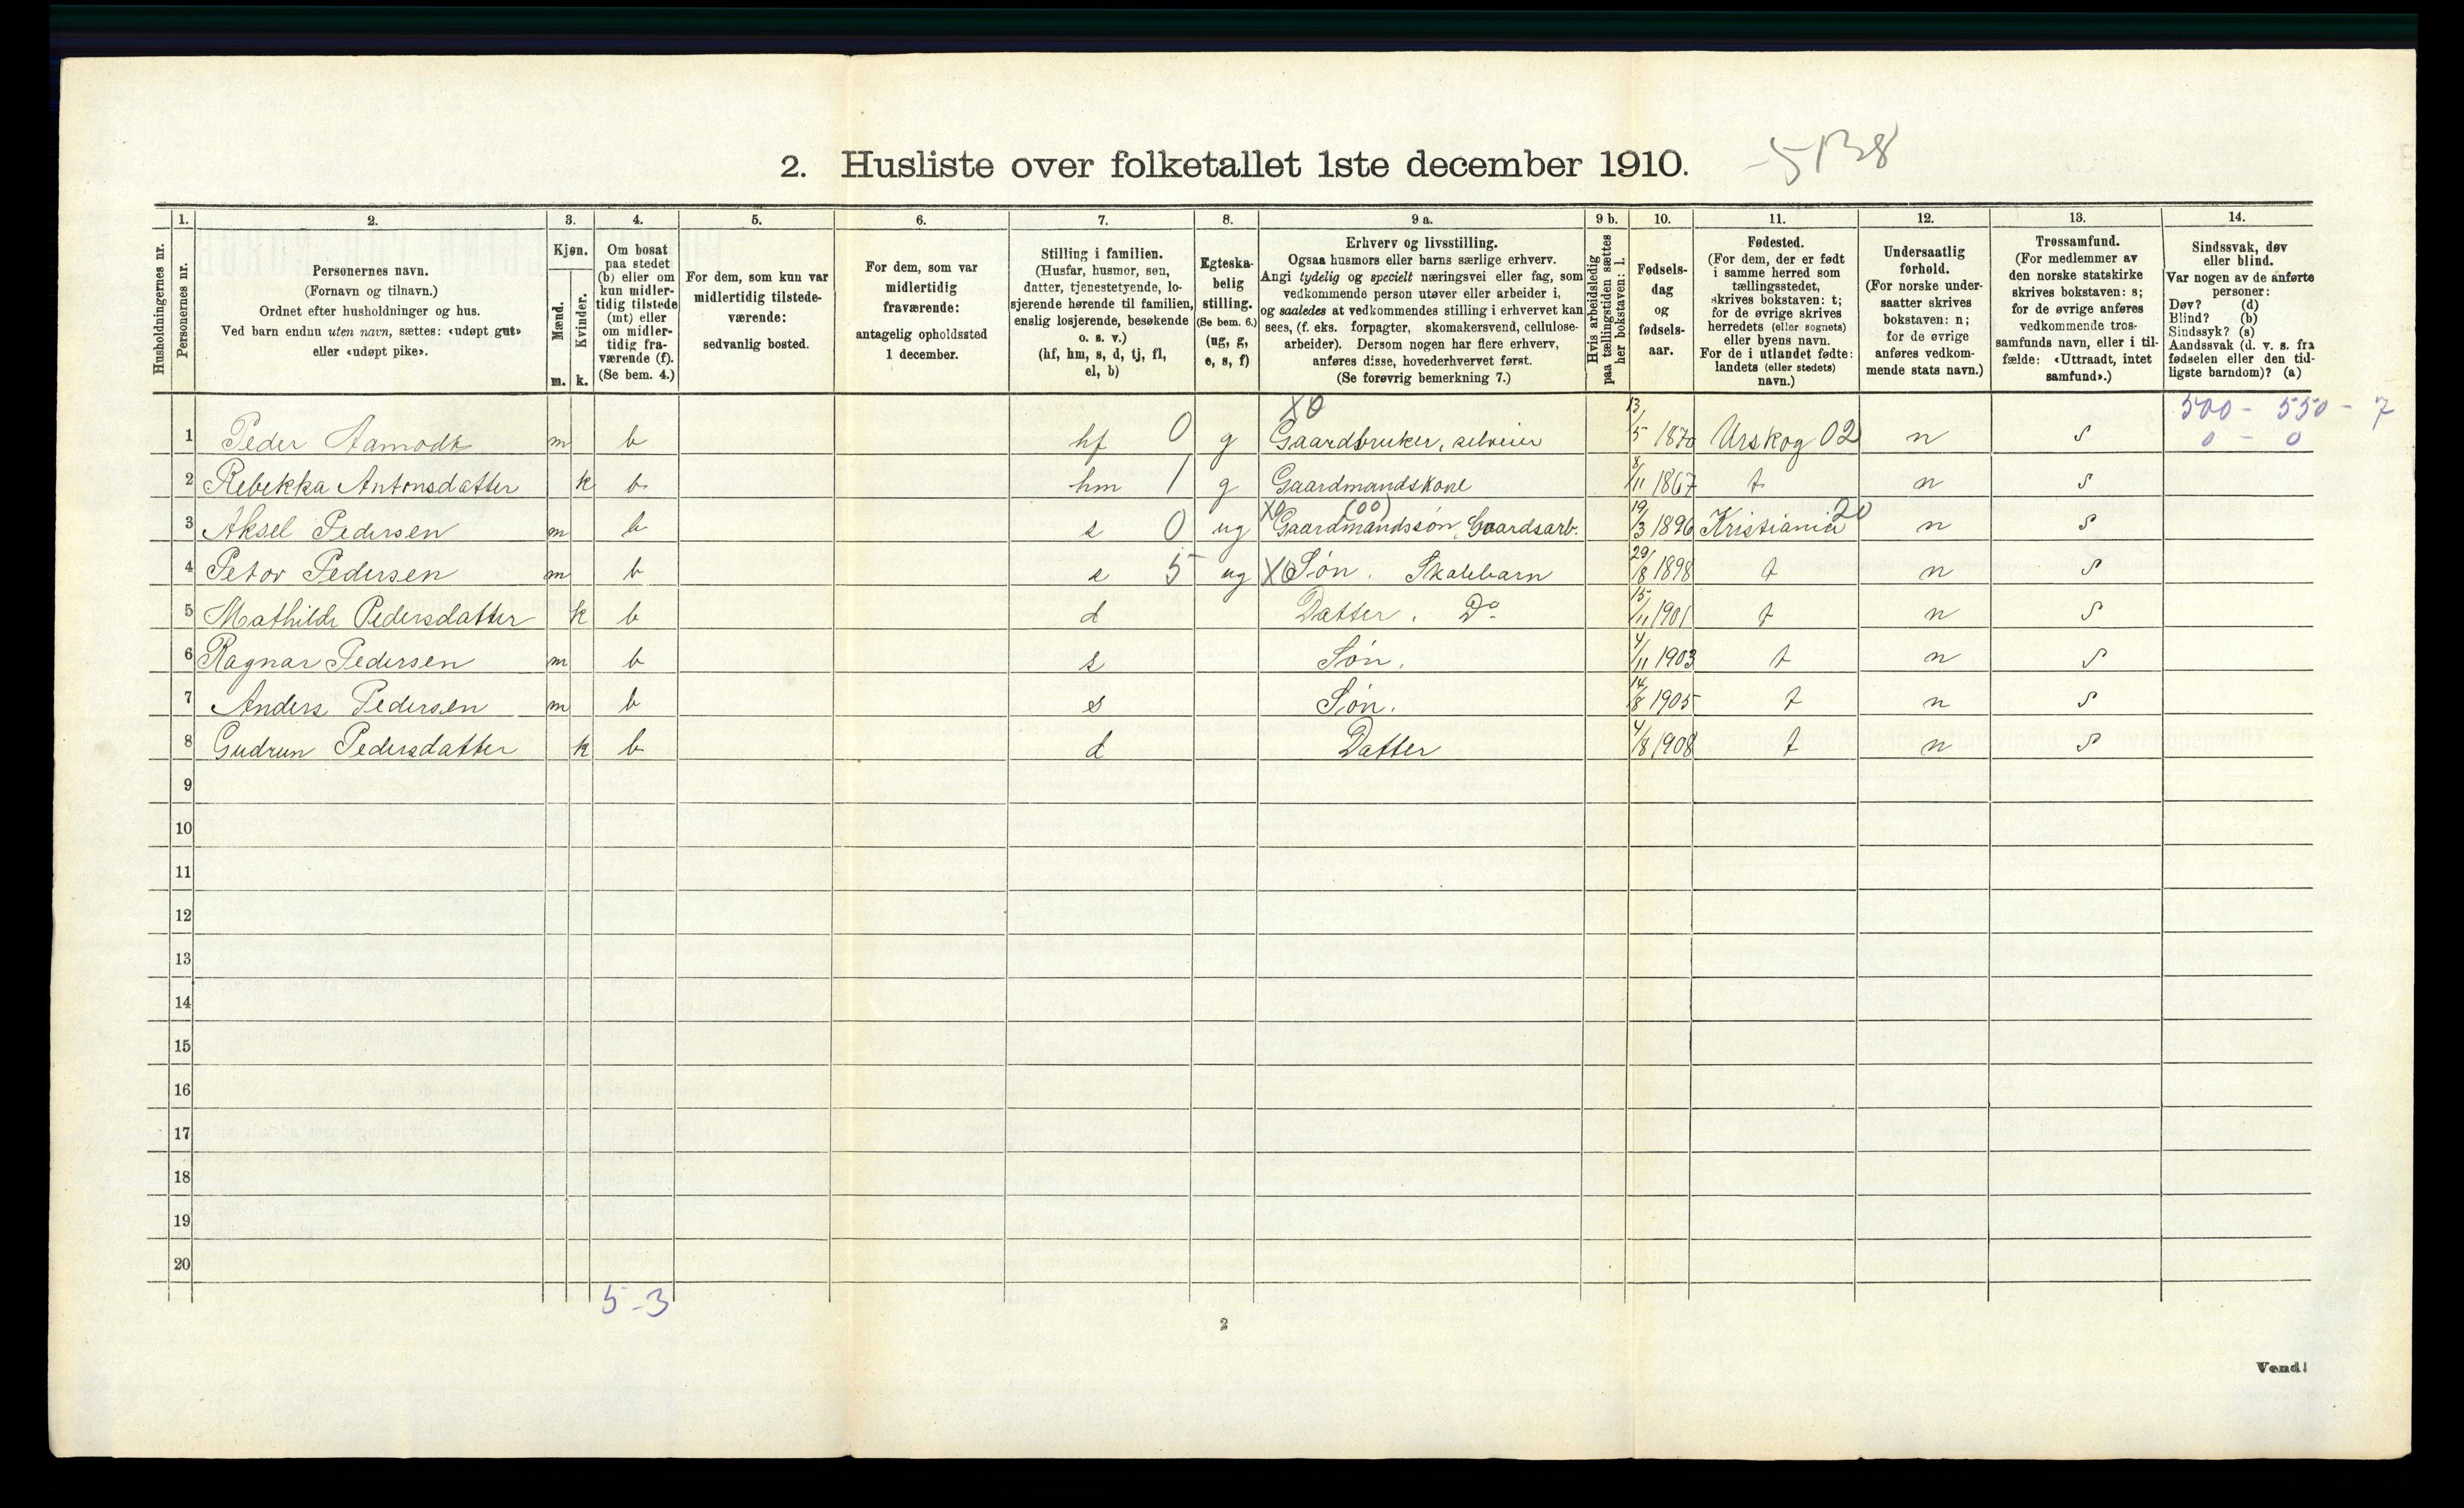 2. Husliste over folketallet 1ste december 1910.
-5138
Husholdningernes nr.
1.
Personernes nr.
2.
Personernes navn.
(Fornavn og tilnavn.)
Ordnet efter husholdninger og hus.
Ved barn endnu uten navn, sættes: «udøpt gut»
eller «udøpt pike».
3.
Kjøn.
Mænd.
Kvinder.
m. k.
4.
Om bosat
paa stedet
(b) eller om
kun midler-
tidig tilstede
(mt) eller
om midler-
tidig fra-
værende (f).
(Se bem. 4.)
5.
For dem, som kun var
midlertidig tilstede-
værende:
sedvanlig bosted.
6.
For dem, som var
midlertidig
fraværende:
antagelig opholdssted
1 december.
7.
Stilling i familien.
(Husfar, husmor, søn,
datter, tjenestetyende, lo-
sjerende hørende til familien,
enslig losjerende, besøkende
o. s. v.)
(hf, hm, s, d, tj, fl,
el, b)
8.
Egteska-
belig
stilling.
(Se bem. 6.)
(ug, g,
e, s, f)
9 a.
Erhverv og livsstilling.
Ogsaa husmors eller barns særlige erhverv.
Angi tydelig og specielt næringsvei eller fag, som
vedkommende person utøver eller arbeider i,
og saaledes at vedkommendes stilling i erhvervet kan
sees, (f. eks. forpagter, skomakersvend, cellulose-
arbeider). Dersom nogen har flere erhverv,
anføres disse, hovederhvervet først.
(Se forøvrig bemerkning 7.)
9 b.
Hvis arbeidsledig
paa tællingstiden sættes
her bokstaven: l.
10.
Fødsels-
dag
og
fødsels-
aar.
11.
Fødested.
(For dem, der er født
i samme herred som
tællingsstedet,
skrives bokstaven: t;
for de øvrige skrives
herredets (eller sognets)
eller byens navn.
For de i utlandet fødte:
landets (eller stedets)
navn.)
12.
Undersaatlig
forhold.
(For norske under-
saatter skrives
bokstaven: n;
for de øvrige
anføres vedkom-
mende stats navn.)
13.
Trossamfund.
(For medlemmer av
den norske statskirke
skrives bokstaven: s;
for de øvrige anføres
vedkommende tros-
samfunds navn, eller i til-
fælde: «Uttraadt, intet
samfund».)
14.
Sindssvak, døv
eller blind.
Var nogen av de anførte
personer:
Døv? (d)
Blind? (b)
Sindssyk? (s)
Aandssvak (d. v. s. fra
fødselen eller den tid-
ligste barndom)? (a)
500 - 550 - 7
0 - 0
X0
1 Peder Aamodt m b hf 0 g Gaardbruker, selveier 13/5 1870 Urskog 02 n s
2 Rebekka Antonsdatter k b hm 1 g Gaardmandskone 8/11 1867 t n s
X0 (00)
3 Aksel Pedersen m b s 0 ug Gaardmandssøn, Gaardsarb. 19/3 1896 Kristiania 20 n s
4 Petor Pedersen m b s 5 ug X0 Søn. Skolebarn 29/8 1898 t n s
5 Mathilde Pedersdatter k b d Datter. Do 15/11 1901 t n s
6 Ragnar Pedersen m b s Søn. 4/11 1903 t n s
7 Anders Pedersen m b s Søn. 14/8 1905 t n s
8 Gudrun Pedersdatter k b d Datter 4/8 1908 t n s
9
10
11
12
13
14
15
16
17
18
19
20
5-3
2
Vend!